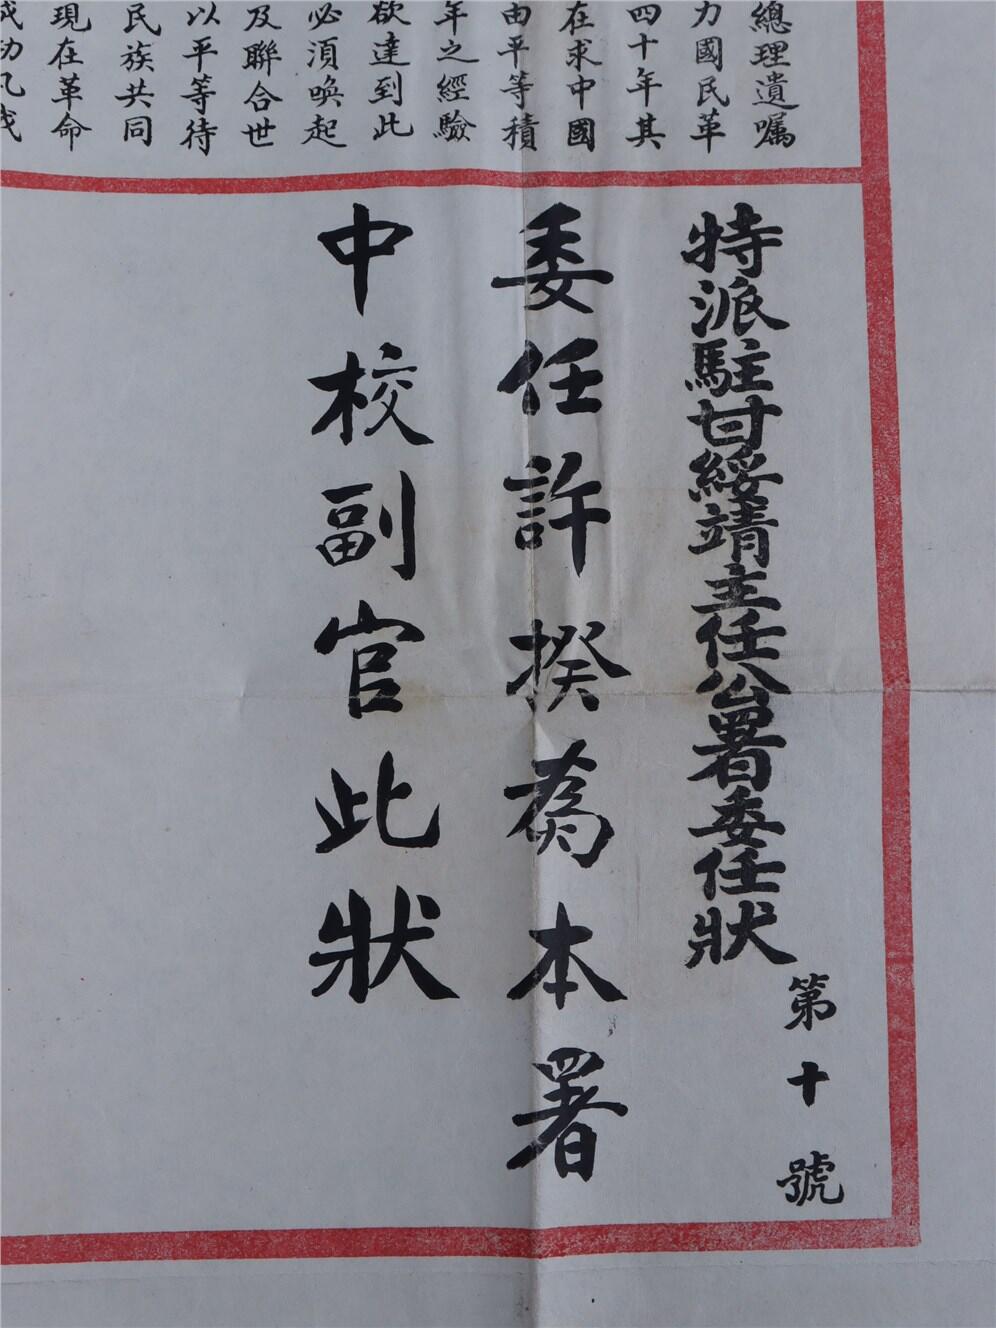 總理遺囑
力國民革
四十年其
在求中國
由平等積
年之經驗
欲達到此
必須喚起
及聯合世
以平等待
民族共同
現在革命
成功凡我
特派駐甘綏靖主任公署委任狀
第十號
委任許揆為本署
中校副官此狀